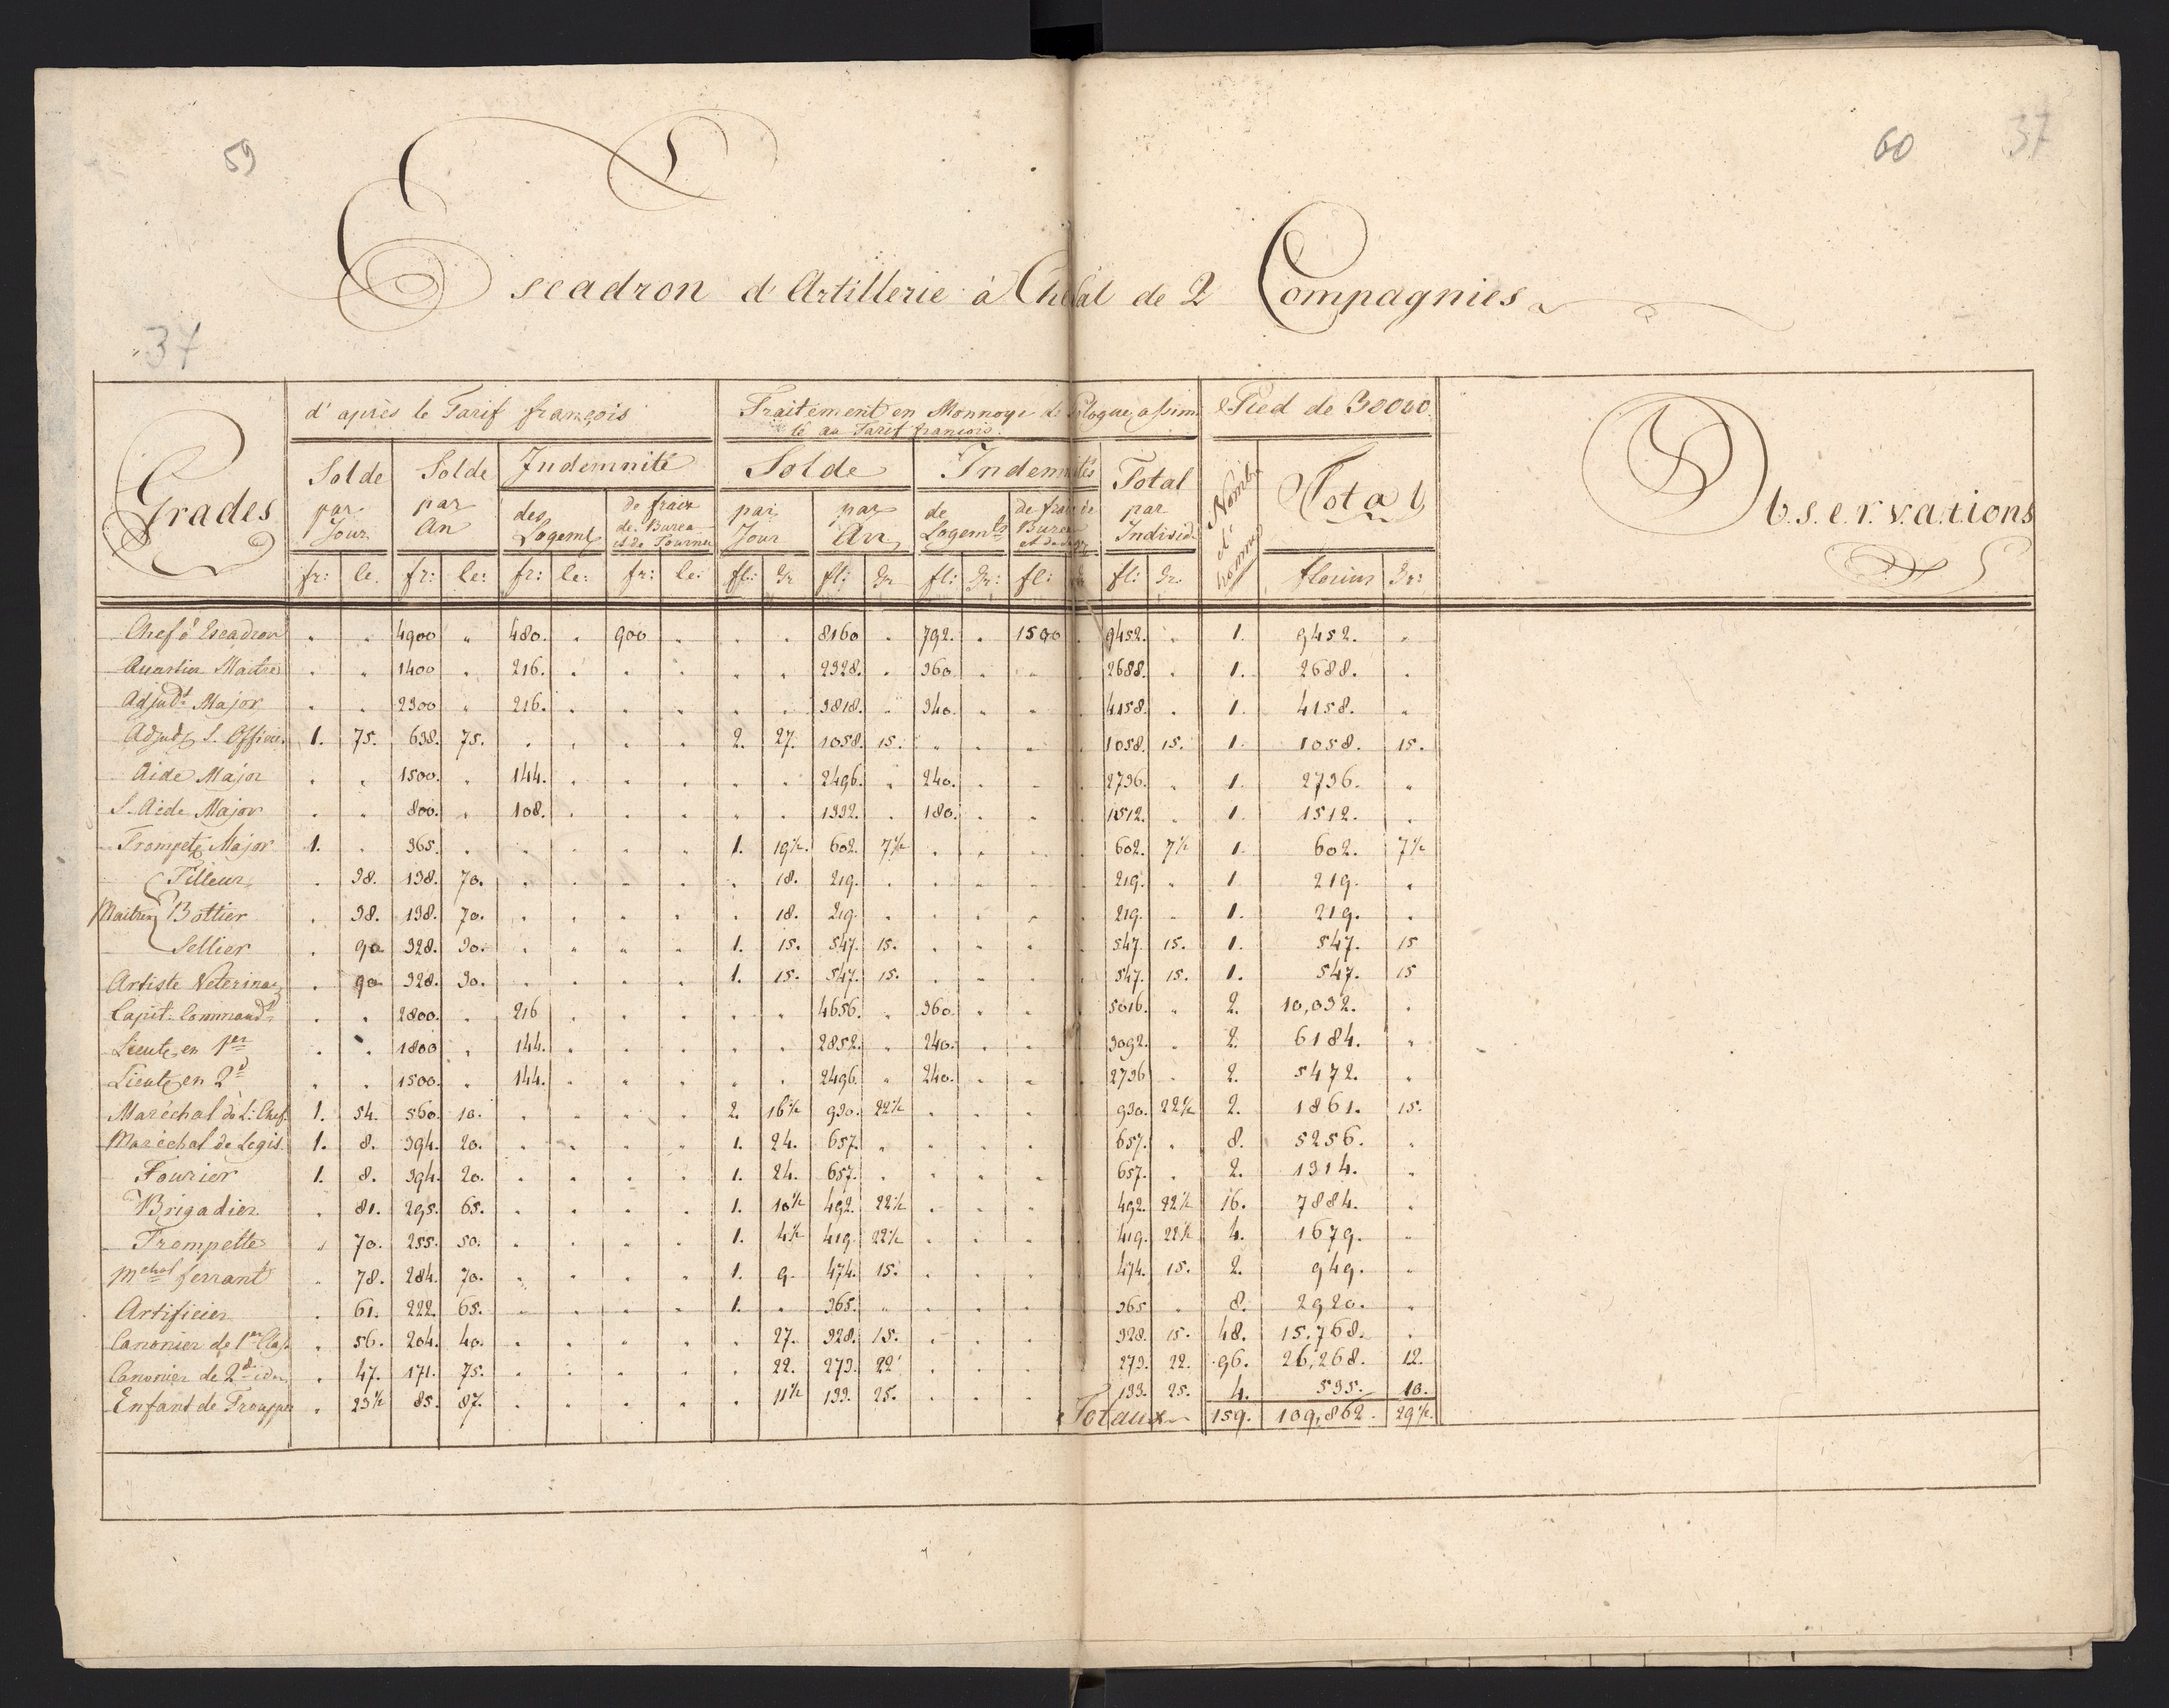 59
60 37
Escadron d'Artillerie à Cheval de 2 Compagnies
37
Grades d'après le Tarif françois Traitement en Monnoye de Pologne, assimi Pied de 30000. Observations
lé au Tarif françois.
Solde par Jour Solde par An Indemnité Solde Indemnités Total par Individ. Nombre d'hommes Total
des Logemts de fraix de Bureau et de Fourni par Jour par An de Logemts de fraix de Bureau
fr: le. fr: le: fr: le: fr: le: fl: gr fl: gr fl: gr: fl: fl: gr. florins gr:
Chef d'Escadron . . 4900 " 480. . 900 . . . 8160 . 792. . 1500 . 9452. " 1. 9452. "
Quartier Maitre . " 1400 . 216. . . . . . 2328. . 360. . . . 2688. . 1. 2688. .
Adjudt. Major . . 2300 " 216. . . . . . 3818. . 340. . . . 4158. . 1. 4158. "
Adjudt S. Officier 1. 75. 638. 75. . . . . 2. 27. 1058. 15. . . . . 1058. 15. 1. 1058. 15.
Aide Major . . 1500. . 144. . . . . . 2496. . 240. . . . 2736. . 1. 2736. "
S. Aide Major . . 800. . 108. . . . . . 1332. . 180. . . . 1512. . 1. 1512. .
Trompette Major 1. . 365. . . . . . 1. 19½. 602. 7½ . . . . 602. 7½ 1. 602. 7½
Tilleur . 38. 138. 70. . . . . . 18. 219. . . . . . 219. . 1 219. .
Maitres Bottier . 38. 138. 70. . . . . . 18. 219. . . . . . 219. . 1. 219. .
Sellier . 90 328. 30. . . . . 1. 15. 547. 15. . . . . 547 15. 1. 547. 15
Artiste Veterinai . 90 328. 30. . . . . 1. 15. 547. 15. . . . . 547. 15. 1. 547. 15
Capit. Commandt . . 2800. . 216 . . . . . 4656. " 360. . . . 5016. " 2. 10,032. .
Lieut. en 1er . . 1800 . 144. . . . . . 2852. . 240. . . . 3092. . 2. 6184. "
Lieut. en 2d " . 1500. . 144. . . . . . 2496. " 240. . . . 2736 . 2. 5472. "
Maréchal de L: Chef. 1. 54. 560. 10. . . . . 2. 16½ 930. 22½ . . . . 930. 22½ 2. 1861. 15.
Maréchal de Logis. 1. 8. 394. 20. . . . . 1. 24. 657. " . . . . 657. " 8. 5256. .
Fourier 1. 8. 394. 20. . . . . 1. 24. 657. . . . . . 657. . 2. 1314. "
Brigadier . 81. 295. 65. . . . . 1. 10½ 492. 22½ . . . . 492. 22½ 16. 7884. .
Trompette " 70. 255. 50. . . . . 1. 4½ 419. 22½ . . . . 419. 22½ 4. 1679. "
Mchal ferrant . 78. 284. 70. . . . . 1. 9. 474. 15. . . . . 474. 15. 2. 949. .
Artificier . 61. 222. 65. . . . . 1. . 365. " . . . . 365 . 8. 2920. "
Canonier de 1re Clas. . 56. 204. 40. . . . . . 27. 328. 15. . . . . 328. 15. 48. 15.768. .
Canonier de 2de idem . 47. 171. 75. . . . . . 22. 273. 22 . . . . 273. 22. 96. 26,268. 12.
Enfant de Trouppe . 23½ 85. 87. . . . . . 11½ 133. 25. . . . . 133. 25. 4. 535. 10.
Totaux 159. 109,862. 29½.